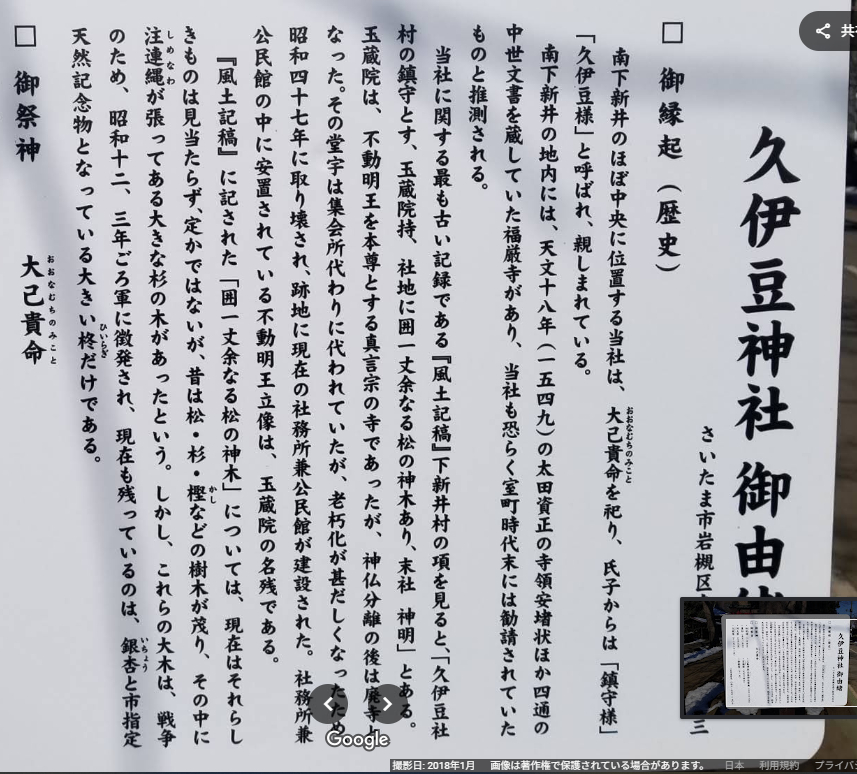 久伊豆神社 御由緒
さいたま市岩槻区
三
□ 御縁起（歴史）
南下新井のほぼ中央に位置する当社は、大己貴命を祀り、氏子からは「鎮守様」
おおなむちのみこと
「久伊豆様」と呼ばれ、親しまれている。
南下新井の地内には、天文十八年（一五四九）の太田資正の寺領安堵状ほか四通の
中世文書を蔵していた福厳寺があり、当社も恐らく室町時代末には勧請されていた
ものと推測される。
当社に関する最も古い記録である『風土記稿』下新井村の項を見ると、「久伊豆社
村の鎮守とす、玉蔵院持、社地に囲一丈余なる松の神木あり、末社 神明」とある。
玉蔵院は、不動明王を本尊とする真言宗の寺であったが、神仏分離の後は廃寺と
なった。その堂宇は集会所代わりに代われていたが、老朽化が甚だしくなったため
昭和四十七年に取り壊され、跡地に現在の社務所兼公民館が建設された。社務所兼
公民館の中に安置されている不動明王立像は、玉蔵院の名残である。
『風土記稿』に記された「囲一丈余なる松の神木」については、現在はそれらし
きものは見当たらず、定かではないが、昔は松・杉・樫などの樹木が茂り、その中に
かし
注連縄が張ってある大きな杉の木があったという。しかし、これらの大木は、戦争
しめなわ
のため、昭和十二、三年ごろ軍に徴発され、現在も残っているのは、銀杏と市指定
いちょう
天然記念物となっている大きい柊だけである。
ひいらぎ
□ 御祭神 大己貴命
おおなむちのみこと
共
久伊豆神社 御由緒
Google
撮影日: 2018年1月 画像は著作権で保護されている場合があります。 日本 利用規約 プライバ